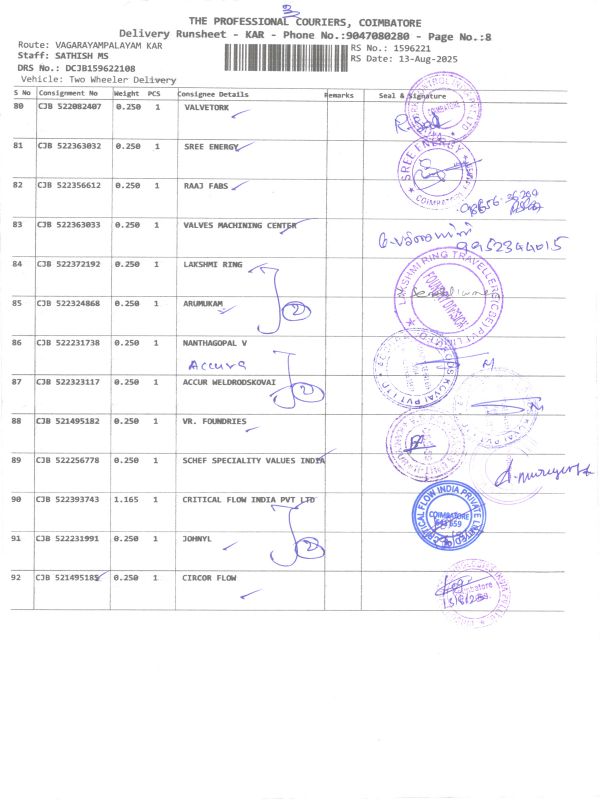 3
THE PROFESSIONAL COURIERS, COIMBATORE
Delivery Runsheet - KAR - Phone No.:9047080280 - Page No.:8
Route: VAGARAYAMPALAYAM KAR
RS No.: 1596221
Staff: SATHISH MS
RS Date: 13-Aug-2025
DRS No.: DCJB159622108
Vehicle: Two Wheeler Delivery
S No Consignment No Weight PCS Consignee Details Remarks Seal & Signature
80 CJB 522082407 0.250 1 VALVETORK
COIMBATORE
81 CJB 522363032 0.250 1 SREE ENERGY
SREE ENERGY
COIMBATORE
82 CJB 522356612 0.250 1 RAAJ FABS
83 CJB 522363033 0.250 1 VALVES MACHINING CENTER
9952344015
84 CJB 522372192 0.250 1 LAKSHMI RING
LAKSHMI RING TRAVELLERS (CBE) PVT LIMITED
FOUNDRY DIVISION
2
85 CJB 522324868 0.250 1 ARUMUKAM
86 CJB 522231738 0.250 1 NANTHAGOPAL V
Accura
87 CJB 522323117 0.250 1 ACCUR WELDRODSKOVAI
2
88 CJB 521495182 0.250 1 VR. FOUNDRIES
89 CJB 522256778 0.250 1 SCHEF SPECIALITY VALUES INDIA
90 CJB 522393743 1.165 1 CRITICAL FLOW INDIA PVT LTD
CRITICAL FLOW INDIA PRIVATE LIMITED
COIMBATORE
641 659
2
91 CJB 522231991 0.250 1 JOHNYL
92 CJB 521495185 0.250 1 CIRCOR FLOW
Coimbatore